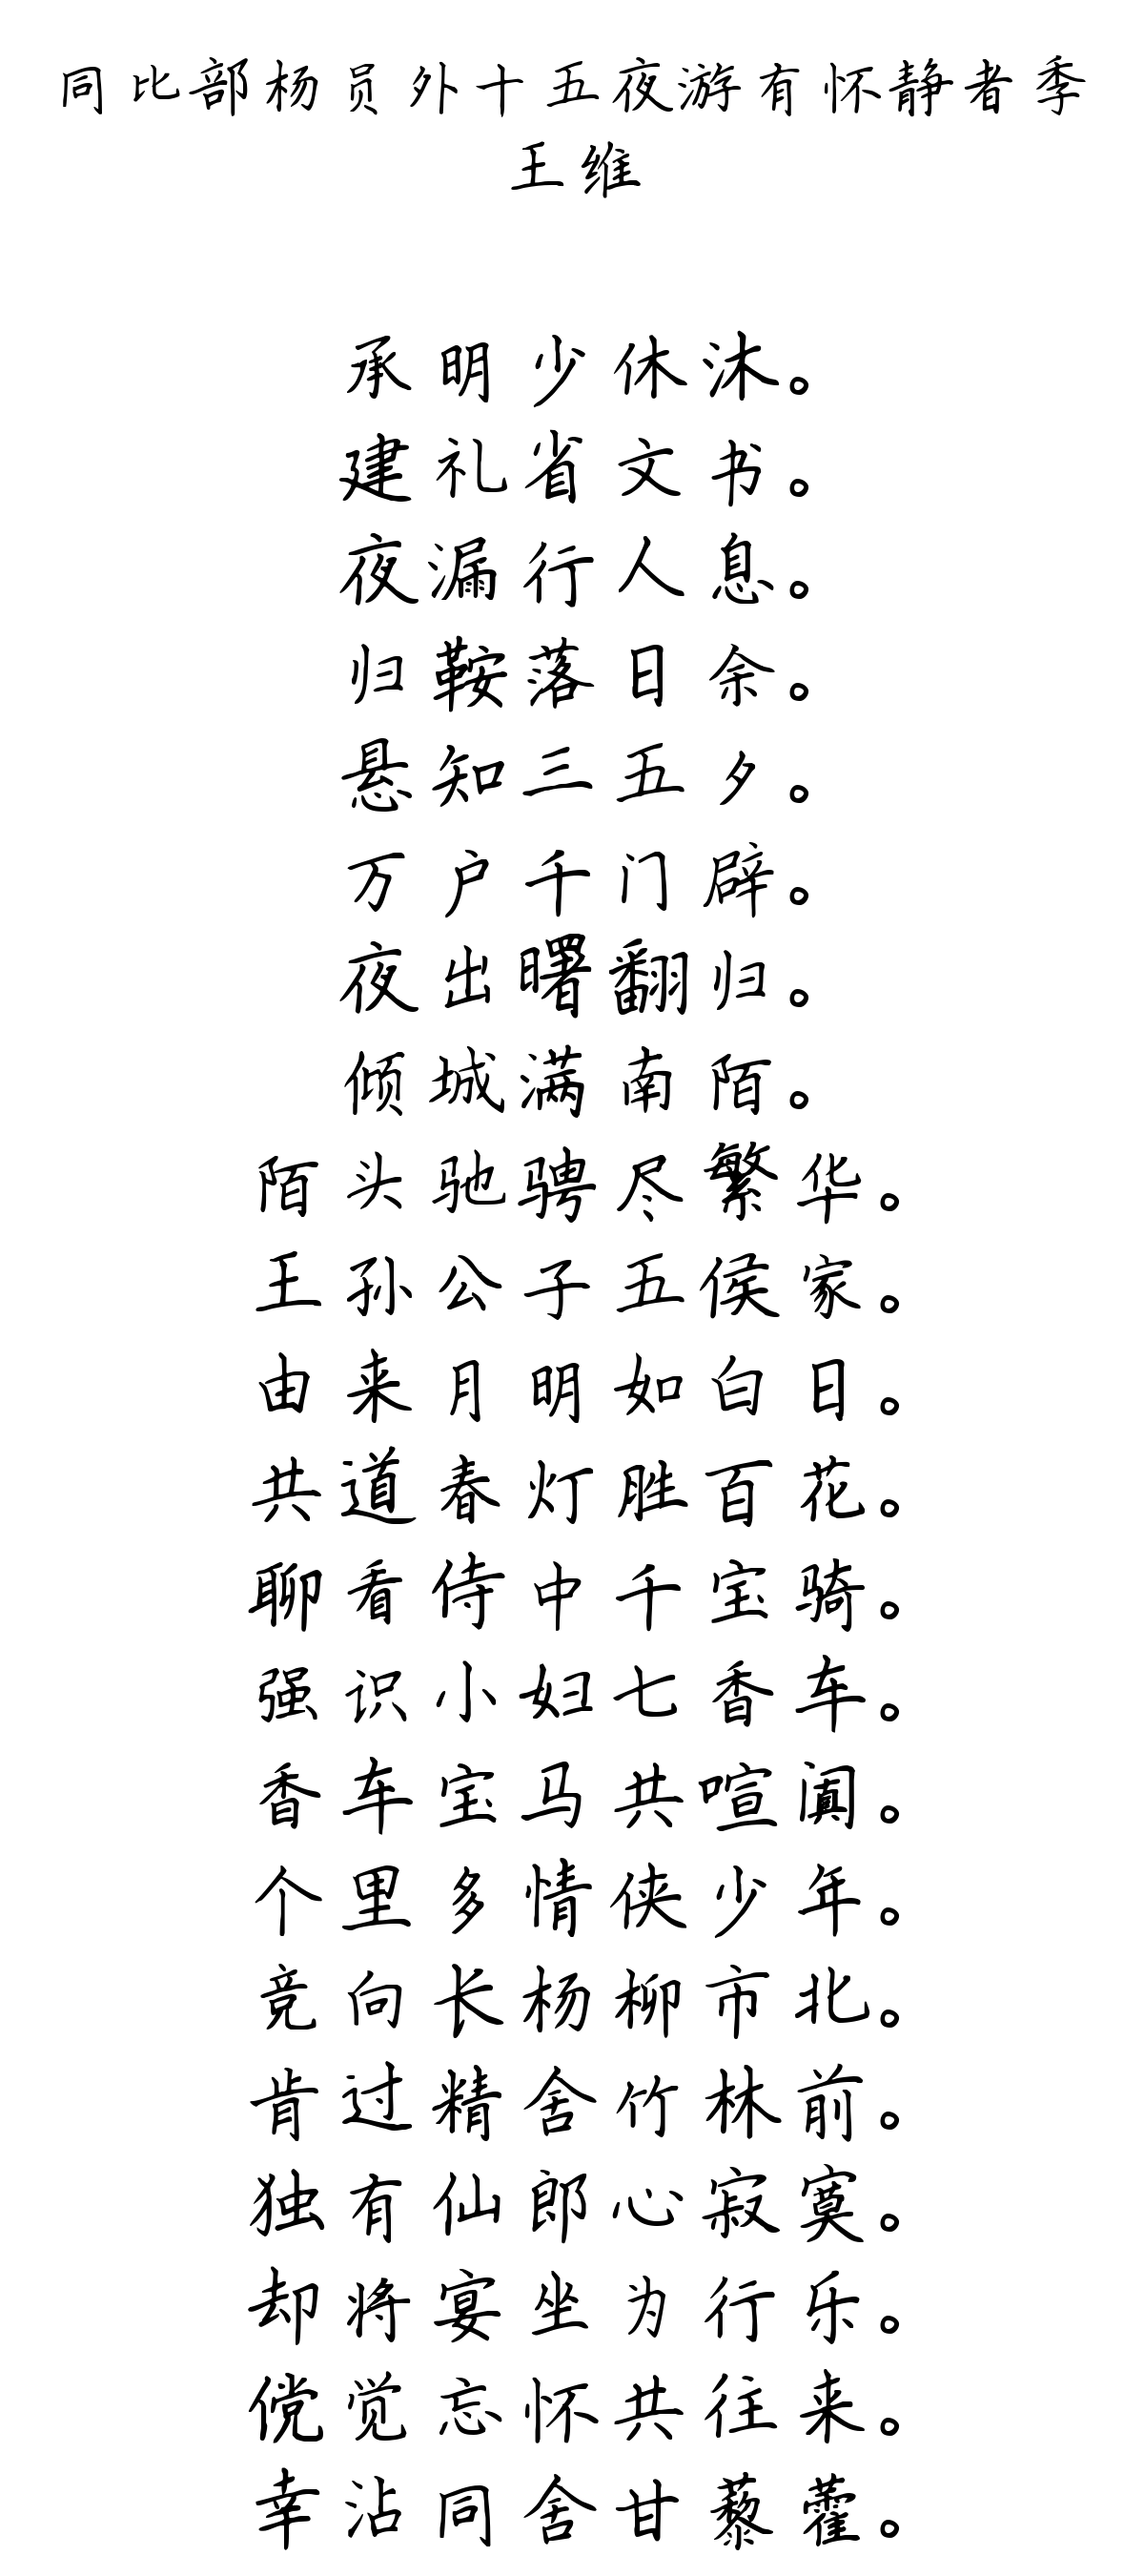 同比部杨员外十五夜游有怀静者季
王维
承明少休沐。
建礼省文书。
夜漏行人息。
归鞍落日余。
悬知三五夕。
万户千门辟。
夜出曙翻归。
倾城满南陌。
陌头驰骋尽繁华。
王孙公子五侯家。
由来月明如白日。
共道春灯胜百花。
聊看侍中千宝骑。
强识小妇七香车。
香车宝马共喧阗。
个里多情侠少年。
竞向长杨柳市北。
肯过精舍竹林前。
独有仙郎心寂寞。
却将宴坐为行乐。
傥觉忘怀共往来。
幸沾同舍甘藜藿。